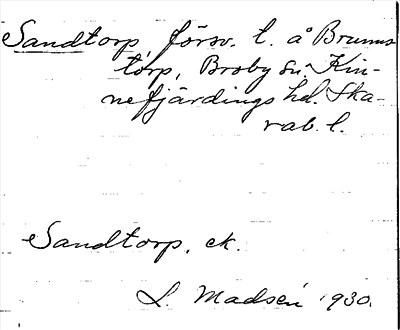 Sandtorp, försv. l. å Brunns-
torp, Broby sn. Kin-
nefjärdings hd. Ska-
rab. l.
Sandtorp, ck.
L. Madsén 1930.